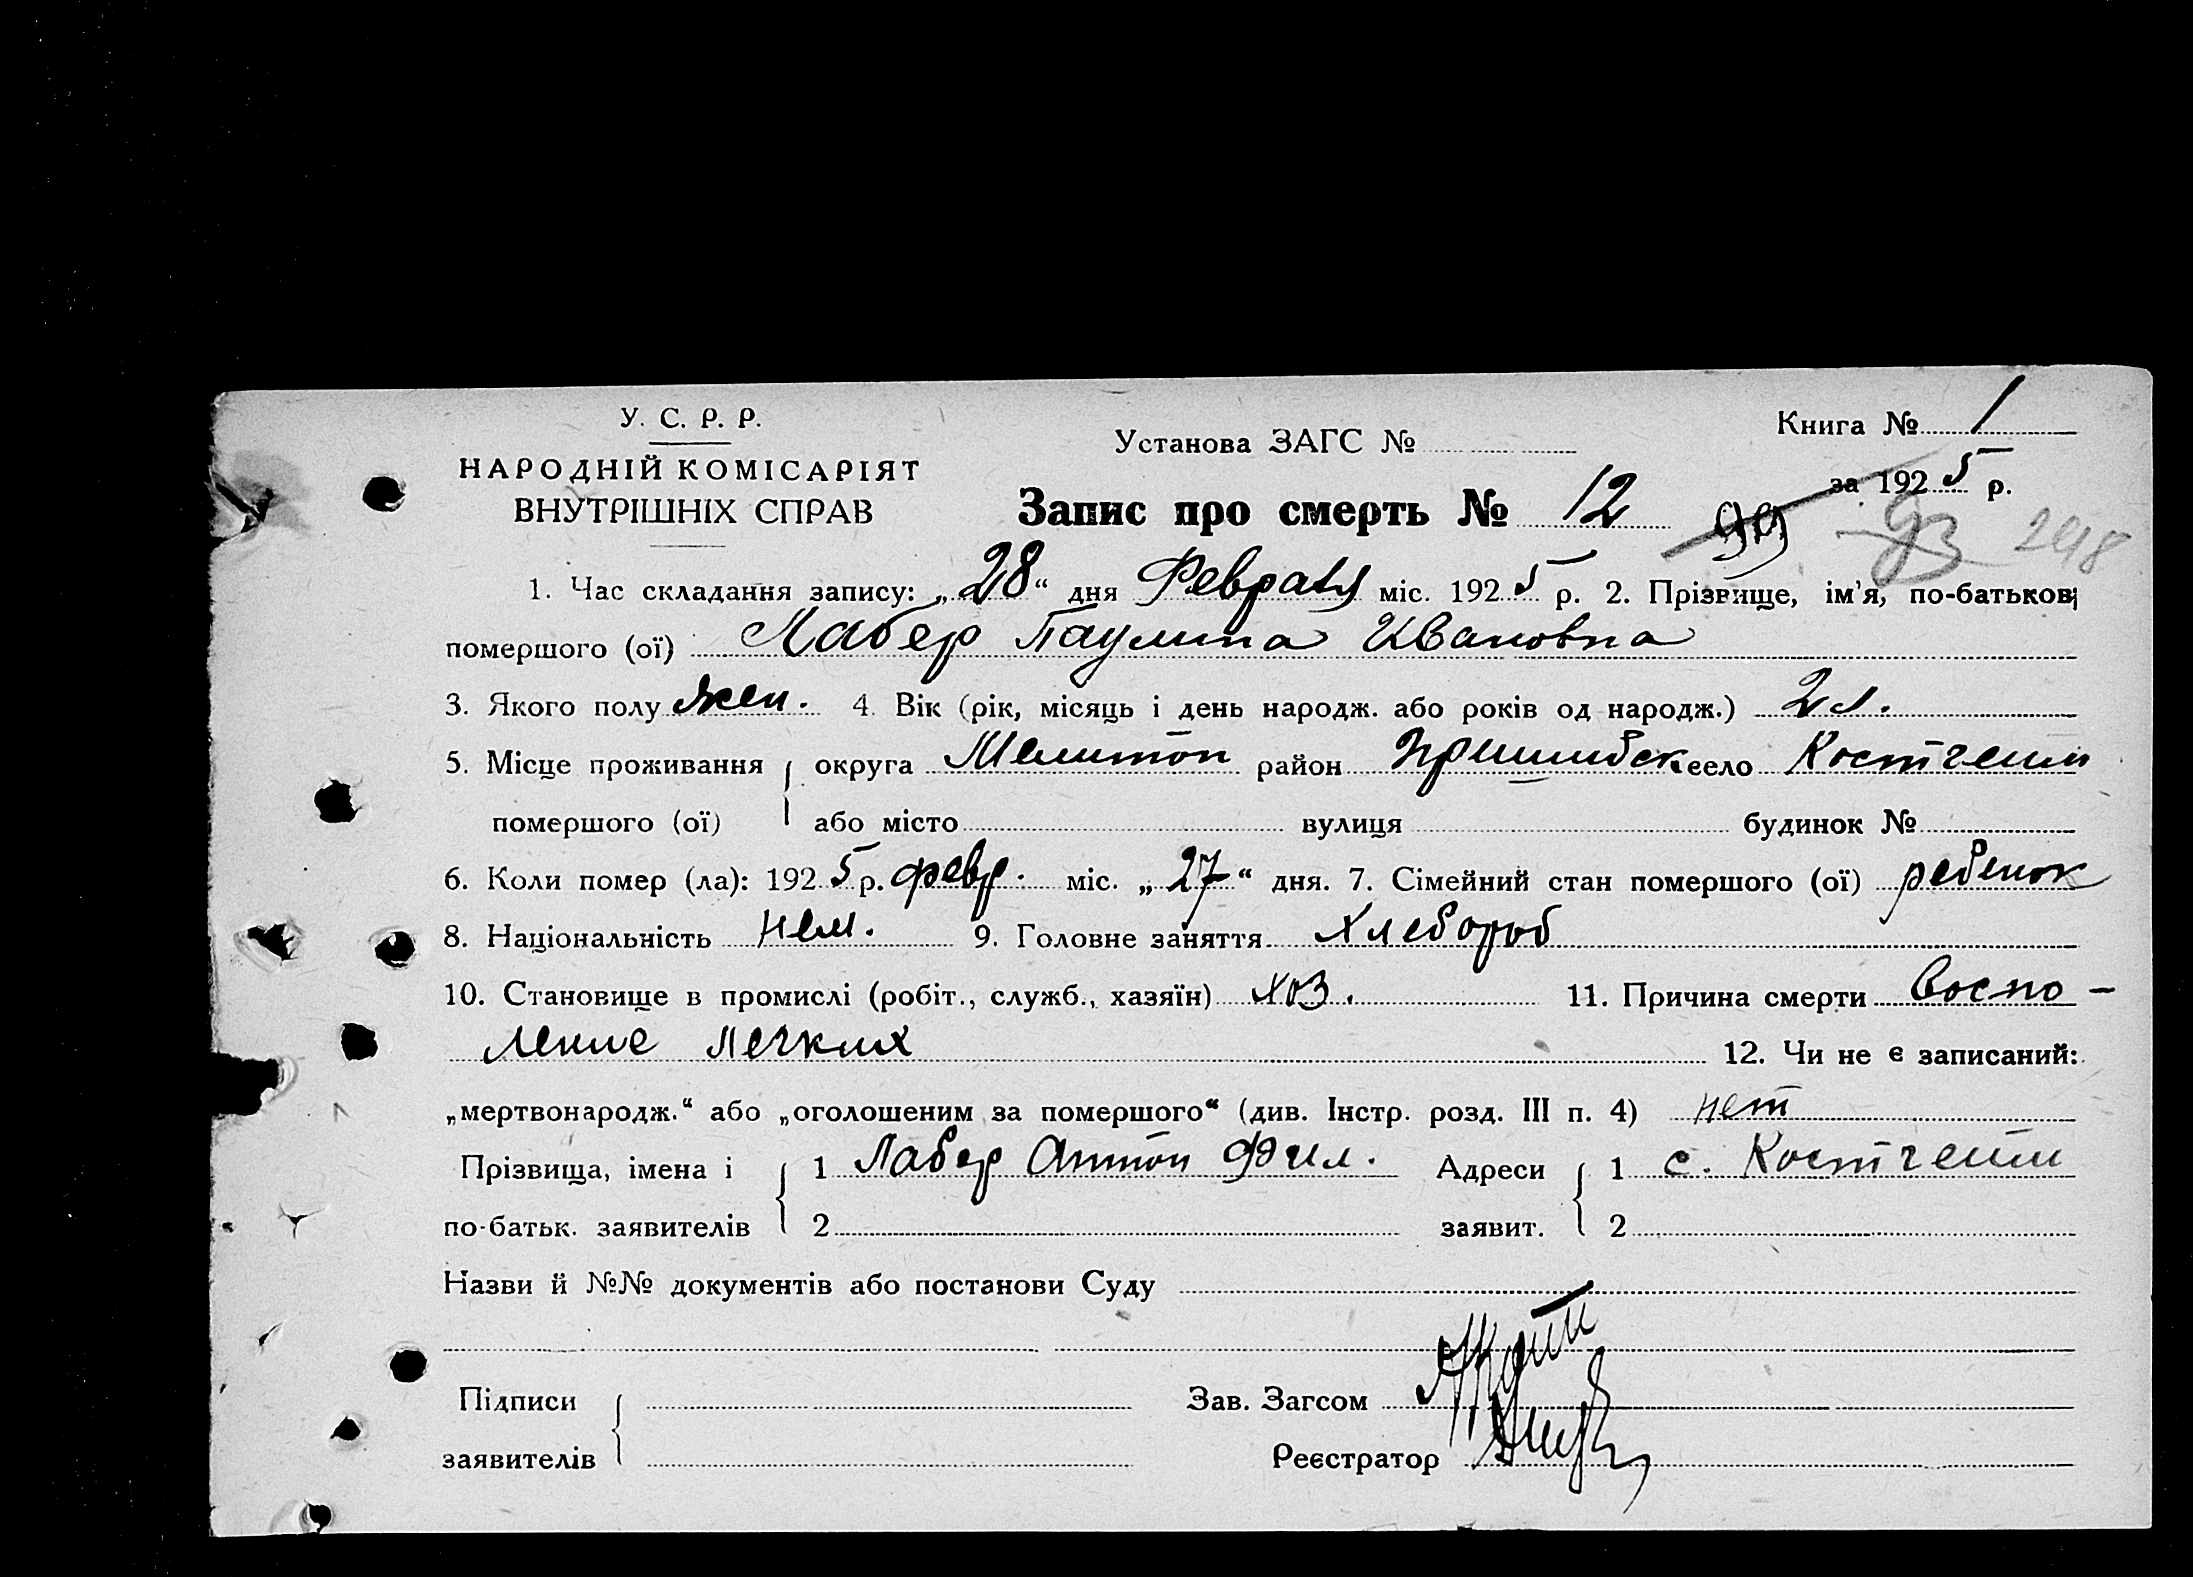 У. С. Р. Р.
НАРОДНІЙ КОМІСАРІЯТ
ВНУТРІШНІХ СПРАВ
Установа ЗАГС №
Книга № 1
за 1925 р.
Запис про смерть № 12 99 93 248
1. Час складання запису: „28“ дня Февраля міс. 1925 р. 2. Прізвище, ім'я, по-батькові
помершого (ої) Лабер Паулина Ивановна
3. Якого полу жен. 4. Вік (рік, місяць і день народж. або років од народж.) 2 л.
5. Місце проживання округа Мелитоп район Пришибск село Костгейм
помершого (ої) або місто вулиця будинок №
6. Коли помер (ла): 1925 р. февр. міс. „27“ дня. 7. Сімейний стан помершого (ої) ребенок
8. Національність нем. 9. Головне заняття Хлебороб
10. Становище в промислі (робіт., служб., хазяїн) хоз. 11. Причина смерти Воспо-
ление легких 12. Чи не є записаний:
„мертвонародж.“ або „оголошеним за помершого“ (див. Інстр. розд. III п. 4) нет
Прізвища, імена і 1 Лабер Антон Фил. Адреси 1 с. Костгейм
по-батьк. заявителів 2 заявит. 2
Назви й №№ документів або постанови Суду
Підписи Зав. Загсом
заявителів Реєстратор